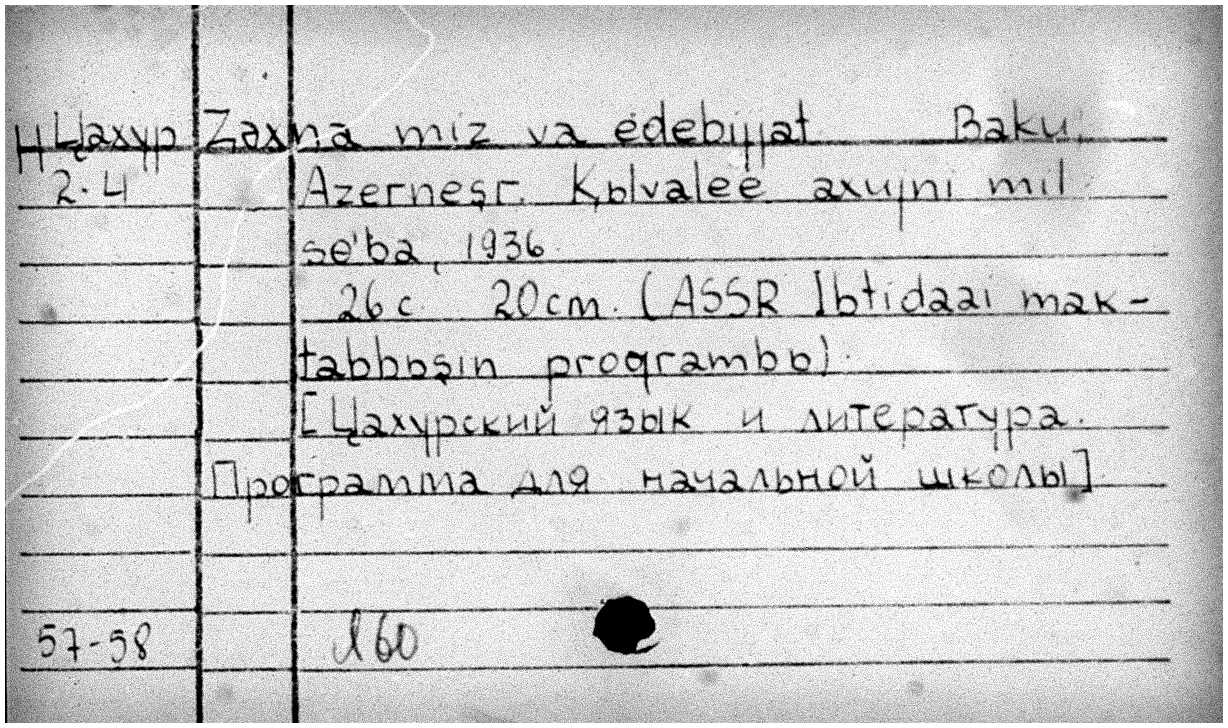 Н Цахур Zəxna miz va edebijjat Baku,
2-4 Azerneşr. Kьlvalee axujni mil
se'ba, 1936.
26 c. 20cm. (ASSR Ibtidaai mak-
tabbьşin programbь).
[Цахурский язык и литература.
Программа для начальной школы].
57-58 160